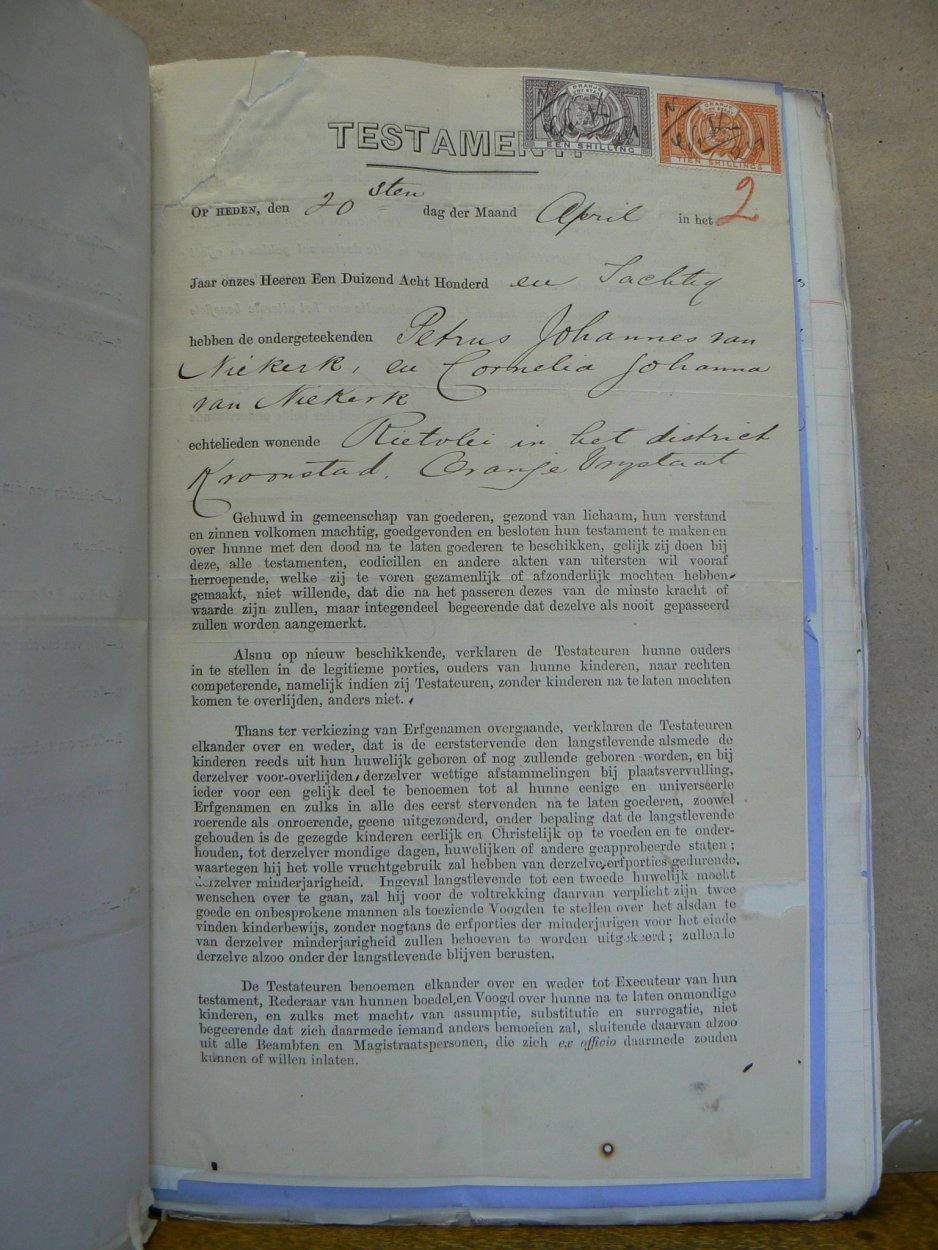 ORANJE
VRY STAAT
EEN SHILLING
ORANJE
VRY STAAT
TIEN SHILLINGS
TESTAMENT
OP HEDEN, den 20sten dag der Maand April in het
2
Jaar onzes Heeren Een Duizend Acht Honderd en Tachtig
hebben de ondergeteekenden Petrus Johannes van
Niekerk, en Cornelia Johanna
van Niekerk
echtelieden wonende Rietvlei in het district
Kroonstad, Oranje Vrystaat
Gehuwd in gemeenschap van goederen, gezond van lichaam, hun verstand
en zinnen volkomen machtig, goedgevonden en besloten hun testament te maken en
over hunne met den dood na te laten goederen te beschikken, gelijk zij doen bij
deze, alle testamenten, codicillen en andere akten van uitersten wil vooraf
herroepende, welke zij te voren gezamenlijk of afzonderlijk mochten hebben
gemaakt, niet willende, dat die na het passeren dezes van de minste kracht of
waarde zijn zullen, maar integendeel begeerende dat dezelve als nooit gepasseerd
zullen worden aangemerkt.
Alsnu op nieuw beschikkende, verklaren de Testateuren hunne ouders
in te stellen in de legitieme porties, ouders van hunne kinderen, naar rechten
competerende, namelijk indien zij Testateuren, zonder kinderen na te laten mochten
komen te overlijden, anders niet.
Thans ter verkiezing van Erfgenamen overgaande, verklaren de Testateuren
elkander over en weder, dat is de eerststervende den langstlevende alsmede de
kinderen reeds uit hun huwelijk geboren of nog zullende geboren worden, en bij
derzelver voor-overlijden, derzelver wettige afstammelingen bij plaatsvervulling,
ieder voor een gelijk deel te benoemen tot al hunne eenige en universeele
Erfgenamen en zulks in alle des eerst stervenden na te laten goederen, zoowel
roerende als onroerende, geene uitgezonderd, onder bepaling dat de langstlevende
gehouden is de gezegde kinderen eerlijk en Christelijk op te voeden en te onder-
houden, tot derzelver mondige dagen, huwelijken of andere geapprobeerde staten;
waartegen hij het volle vruchtgebruik zal hebben van derzelver erfporties gedurende
derzelver minderjarigheid. Ingeval langstlevende tot een tweede huwelijk mocht
wenschen over te gaan, zal hij voor de voltrekking daarvan verplicht zijn twee
goede en onbesprokene mannen als toeziende Voogden te stellen over het alsdan te
vinden kinderbewijs, zonder nogtans de erfporties der minderjarigen voor het einde
van derzelver minderjarigheid zullen behoeven te worden uitgekeerd; zullende
derzelve alzoo onder der langstlevende blijven berusten.
De Testateuren benoemen elkander over en weder tot Executeur van hun
testament, Rederaar van hunnen boedel, en Voogd over hunne na te laten onmondige
kinderen, en zulks met macht van assumptie, substitutie en surrogatie, niet
begeerende dat zich daarmede iemand anders bemoeien zal, sluitende daarvan alzoo
uit alle Beambten en Magistraatspersonen, die zich ex officio daarmede zouden
kunnen of willen inlaten.